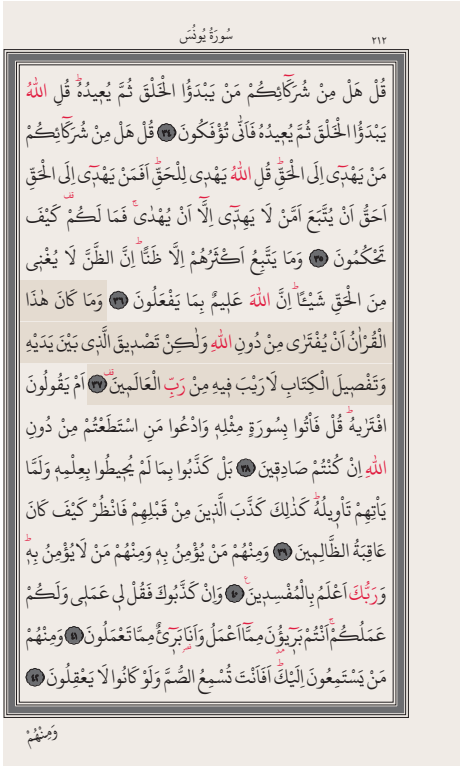 سُورَةُ يُونُسَ
٢١٢
قُلْ هَلْ مِنْ شُرَكَٓائِكُمْ مَنْ يَبْدَؤُا الْخَلْقَ ثُمَّ يُعِيدُهُۜ قُلِ اللّٰهُ
يَبْدَؤُا الْخَلْقَ ثُمَّ يُعِيدُهُ فَاَنّٰى تُؤْفَكُونَ ﴿٣٤﴾ قُلْ هَلْ مِنْ شُرَكَٓائِكُمْ
مَنْ يَهْدٖٓى اِلَى الْحَقِّۜ قُلِ اللّٰهُ يَهْدٖى لِلْحَقِّۜ اَفَمَنْ يَهْدٖٓى اِلَى الْحَقِّ
اَحَقُّ اَنْ يُتَّبَعَ اَمَّنْ لَا يَهِدّٖٓى اِلَّٓا اَنْ يُهْدٰىۚ فَمَا لَكُمْ۠ كَيْفَ
تَحْكُمُونَ ﴿٣٥﴾ وَمَا يَتَّبِعُ اَكْثَرُهُمْ اِلَّا ظَنًّاۜ اِنَّ الظَّنَّ لَا يُغْنٖى
مِنَ الْحَقِّ شَيْـًٔاۜ اِنَّ اللّٰهَ عَلٖيمٌ بِمَا يَفْعَلُونَ ﴿٣٦﴾ وَمَا كَانَ هٰذَا
الْقُرْاٰنُ اَنْ يُفْتَرٰى مِنْ دُونِ اللّٰهِ وَلٰكِنْ تَصْدٖيقَ الَّذٖى بَيْنَ يَدَيْهِ
وَتَفْصٖيلَ الْكِتَابِ لَا رَيْبَ فٖيهِ مِنْ رَبِّ الْعَالَمٖينَ۠ ﴿٣٧﴾ اَمْ يَقُولُونَ
افْتَرٰيهُۜ قُلْ فَأْتُوا بِسُورَةٍ مِثْلِهٖ وَادْعُوا مَنِ اسْتَطَعْتُمْ مِنْ دُونِ
اللّٰهِ اِنْ كُنْتُمْ صَادِقٖينَ ﴿٣٨﴾ بَلْ كَذَّبُوا بِمَا لَمْ يُحٖيطُوا بِعِلْمِهٖ وَلَمَّا
يَأْتِهِمْ تَأْوٖيلُهُۜ كَذٰلِكَ كَذَّبَ الَّذٖينَ مِنْ قَبْلِهِمْ فَانْظُرْ كَيْفَ كَانَ
عَاقِبَةُ الظَّالِمٖينَ ﴿٣٩﴾ وَمِنْهُمْ مَنْ يُؤْمِنُ بِهٖ وَمِنْهُمْ مَنْ لَا يُؤْمِنُ بِهٖۜ
وَرَبُّكَ اَعْلَمُ بِالْمُفْسِدٖينَ۟ ﴿٤٠﴾ وَاِنْ كَذَّبُوكَ فَقُلْ لٖى عَمَلٖى وَلَكُمْ
عَمَلُكُمْۚ اَنْتُمْ بَرٖٓيؤُ۫نَ مِمَّٓا اَعْمَلُ وَاَنَا۬ بَرٖٓىءٌ مِمَّا تَعْمَلُونَ ﴿٤١﴾ وَمِنْهُمْ
مَنْ يَسْتَمِعُونَ اِلَيْكَۜ اَفَاَنْتَ تُسْمِعُ الصُّمَّ وَلَوْ كَانُوا لَا يَعْقِلُونَ ﴿٤٢﴾
وَمِنْهُمْ